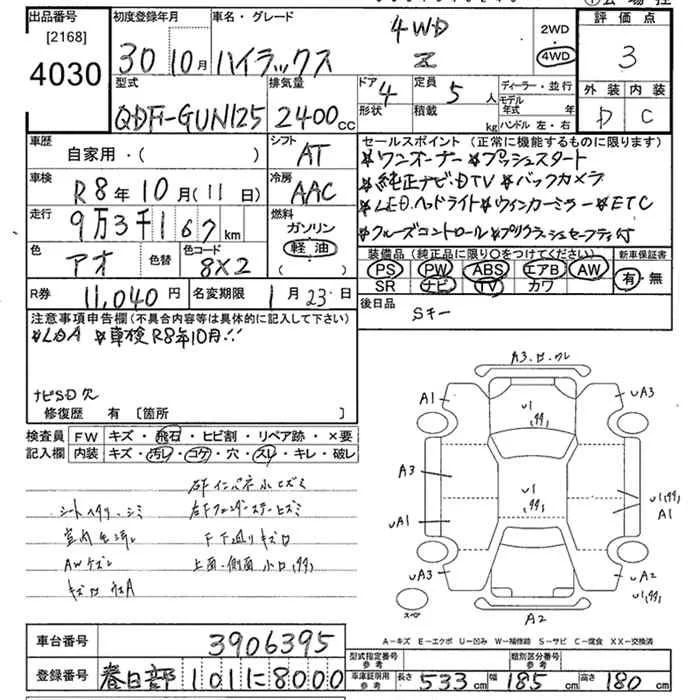 出品番号
[2168]
4030
初度登録年月
30 10月
車名・グレード
ハイラックス
4WD
Z
2WD
4WD
評価点
3
外装 内装
D C
型式
QDF-GUN125
排気量
2400cc
ドア 4
形状
定員 5人
積載 kg
ディーラー・並行
モデル年式 年
ハンドル 左・右
車歴
自家用・( )
シフト
AT
車検
R8年10月(11日)
冷房
AAC
走行
9万3千167km
燃料
ガソリン
軽油
( )
色
アオ
色替
色コード
8X2
R券
11,040円
名変期限
1月23日
セールスポイント(正常に機能するものに限ります)
*ワンオーナー*プッシュスタート
*純正ナビ.DTV*バックカメラ
*LED.ヘッドライト*ウィンカーミラー*ETC
*クルーズコントロール*プリクラッシュセーフティ付
装備品(純正品に限り○をつけてください)
PS PW ABS エアB AW
SR ナビ TV カワ
新車保証書
有・無
後日品
Sキー
注意事項申告欄(不具合内容等は具体的に記入して下さい)
*車検R8年10月!!
ナビSD欠
修復歴 有〔箇所 〕
検査員
記入欄
FW キズ・飛石・ヒビ割・リペア跡・×要
内装 キズ・汚レ・コゲ・穴・スレ・キレ・破レ
シートヘタリ、シミ
AWケズレ
下廻りキズロ
上面・側面
A1
A3
uA1
uA3
u1
u1
uA3
A1
uA2
A2
スペア
A-キズ E-エクボ U-凹み W-補修跡 S-サビ C-腐食 XX-交換済
車台番号
3906395
登録番号
春日部 101に8000
型式指定番号
参考
類別区分番号
参考
車庫証明用
参考
長さ 533cm 幅 185cm 高さ 180cm